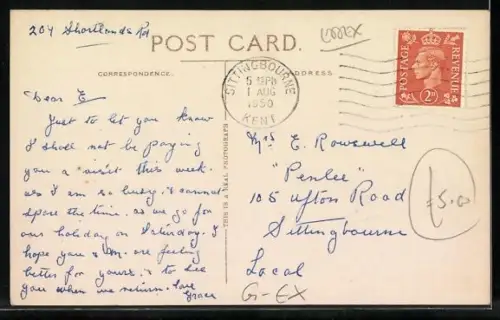 204 Shortlands Rd
POST CARD.
CORRESPONDENCE.
ADDRESS
SITTINGBOURNE
5 PM
1 AUG
1950
KENT
POSTAGE
REVENUE
2D
Dear E
Just to let you know
I shall not be paying
you a visit this week.
as I am so busy, & cannot
spare the time. as we go for
our holiday on Saturday. I
hope you & are feeling
better for yours, & to see
you when we return. Love
Grace
THIS IS A REAL PHOTOGRAPH
Mrs E. Rowswell
"Penlee"
105 Ufton Road
Sittingbourne
Local
G-EX
5.00